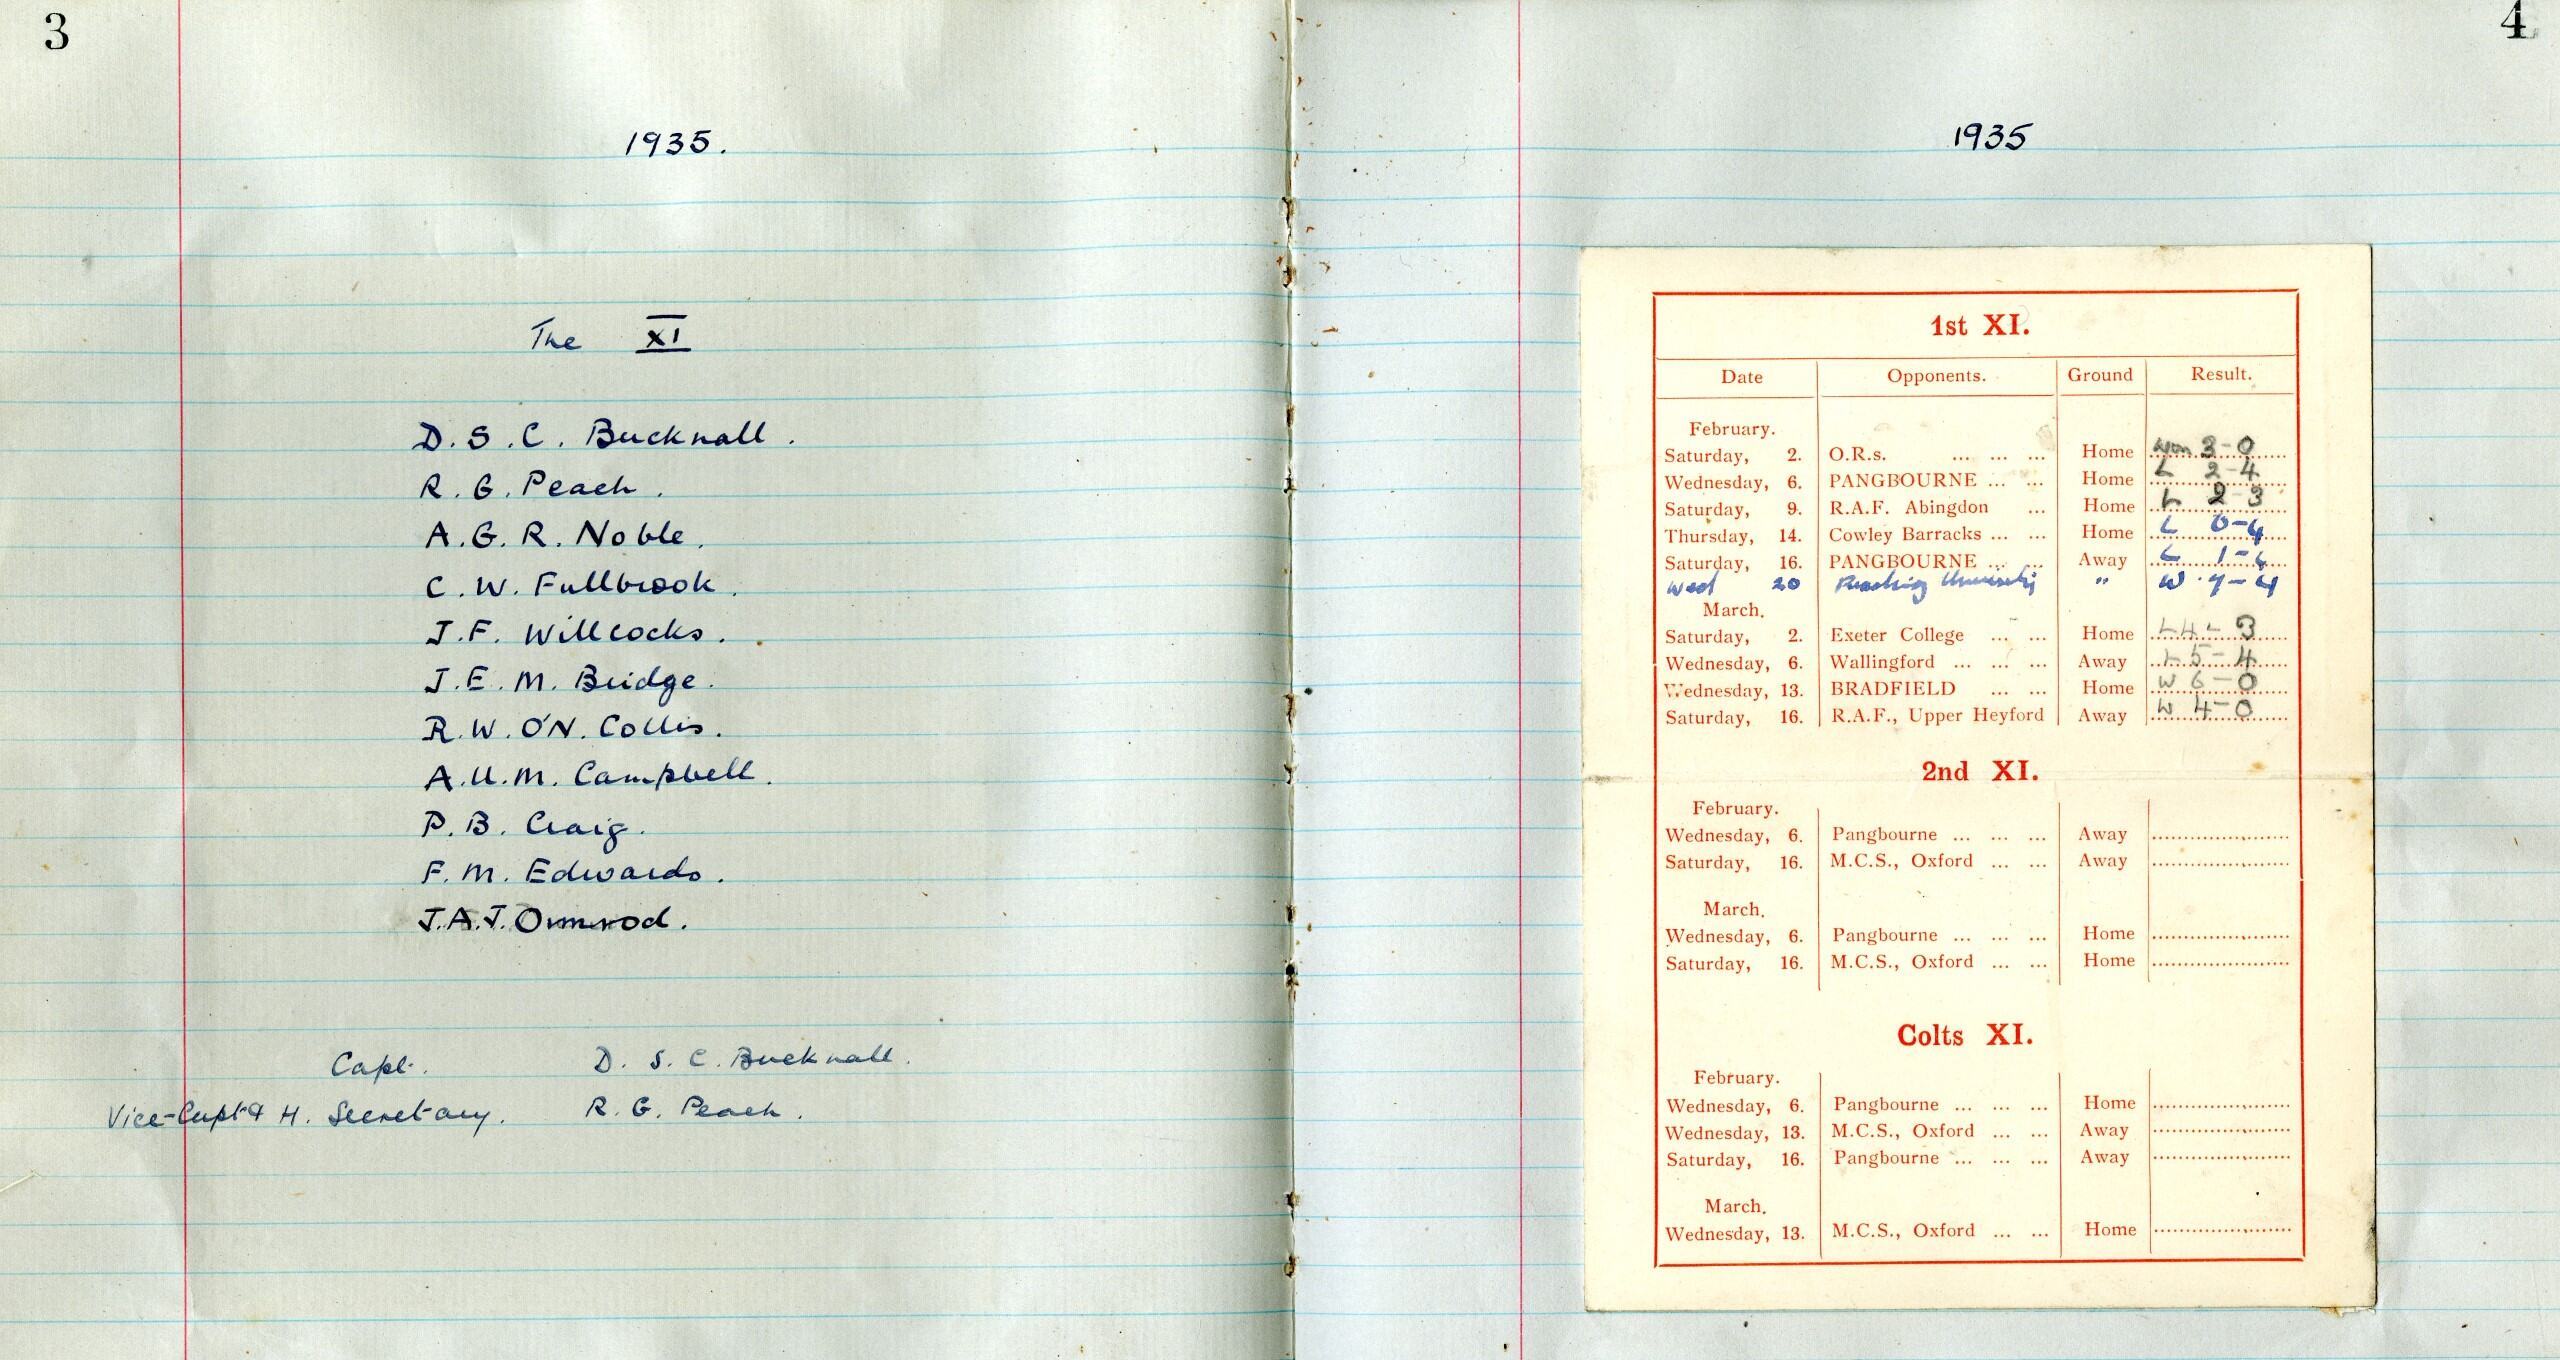 3
1935.
The XI
D. S. C. Bucknall.
R. G. Peach.
A. G. R. Noble.
C. W. Fullbrook.
J. F. Willcocks.
J. E. M. Bridge.
R. W. O'N. Collis.
A. U. M. Campbell.
P. B. Craig.
F. M. Edwards.
J. A. J. Ormrod.
Capt. D. S. C. Bucknall.
Vice-Capt & H. Secretary. R. G. Peach.
4
1935
1st XI.
Date Opponents. Ground Result.
February.
Saturday, 2. O.R.s. ... ... ... Home Won 3-0
Wednesday, 6. PANGBOURNE ... ... Home L 2-4
Saturday, 9. R.A.F. Abingdon ... Home L 2-3
Thursday, 14. Cowley Barracks ... ... Home L 0-4
Saturday, 16. PANGBOURNE ... ... Away L 1-
Wed 20 Reading University " W 7-4
March.
Saturday, 2. Exeter College ... ... Home L 4-3
Wednesday, 6. Wallingford ... ... ... Away L 5-4
Wednesday, 13. BRADFIELD ... ... Home W 6-0
Saturday, 16. R.A.F., Upper Heyford Away W 4-0
2nd XI.
February.
Wednesday, 6. Pangbourne ... ... ... Away
Saturday, 16. M.C.S., Oxford ... ... Away
March.
Wednesday, 6. Pangbourne ... ... ... Home
Saturday, 16. M.C.S., Oxford ... ... Home
Colts XI.
February.
Wednesday, 6. Pangbourne ... ... ... Home
Wednesday, 13. M.C.S., Oxford ... ... Away
Saturday, 16. Pangbourne ... ... ... Away
March.
Wednesday, 13. M.C.S., Oxford ... ... Home